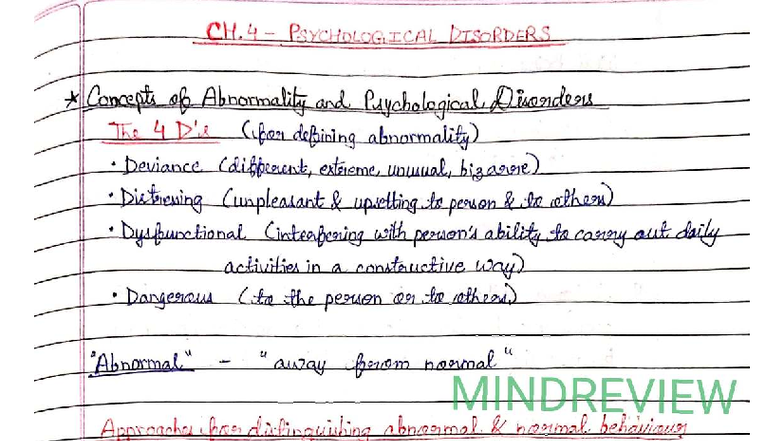 CH.4 - PSYCHOLOGICAL DISORDERS
* Concepts of Abnormality and Psychological Disorders
The 4 D's (for defining abnormality)
• Deviance (different, extreme, unusual, bizarre)
• Distressing (unpleasant & upsetting to person & to others)
• Dysfunctional (interfering with person's ability to carry out daily
activities in a constructive way)
• Dangerous (to the person or to others)
"Abnormal" - "away from normal"
MINDREVIEW
Approaches for distinguishing abnormal & normal behaviour